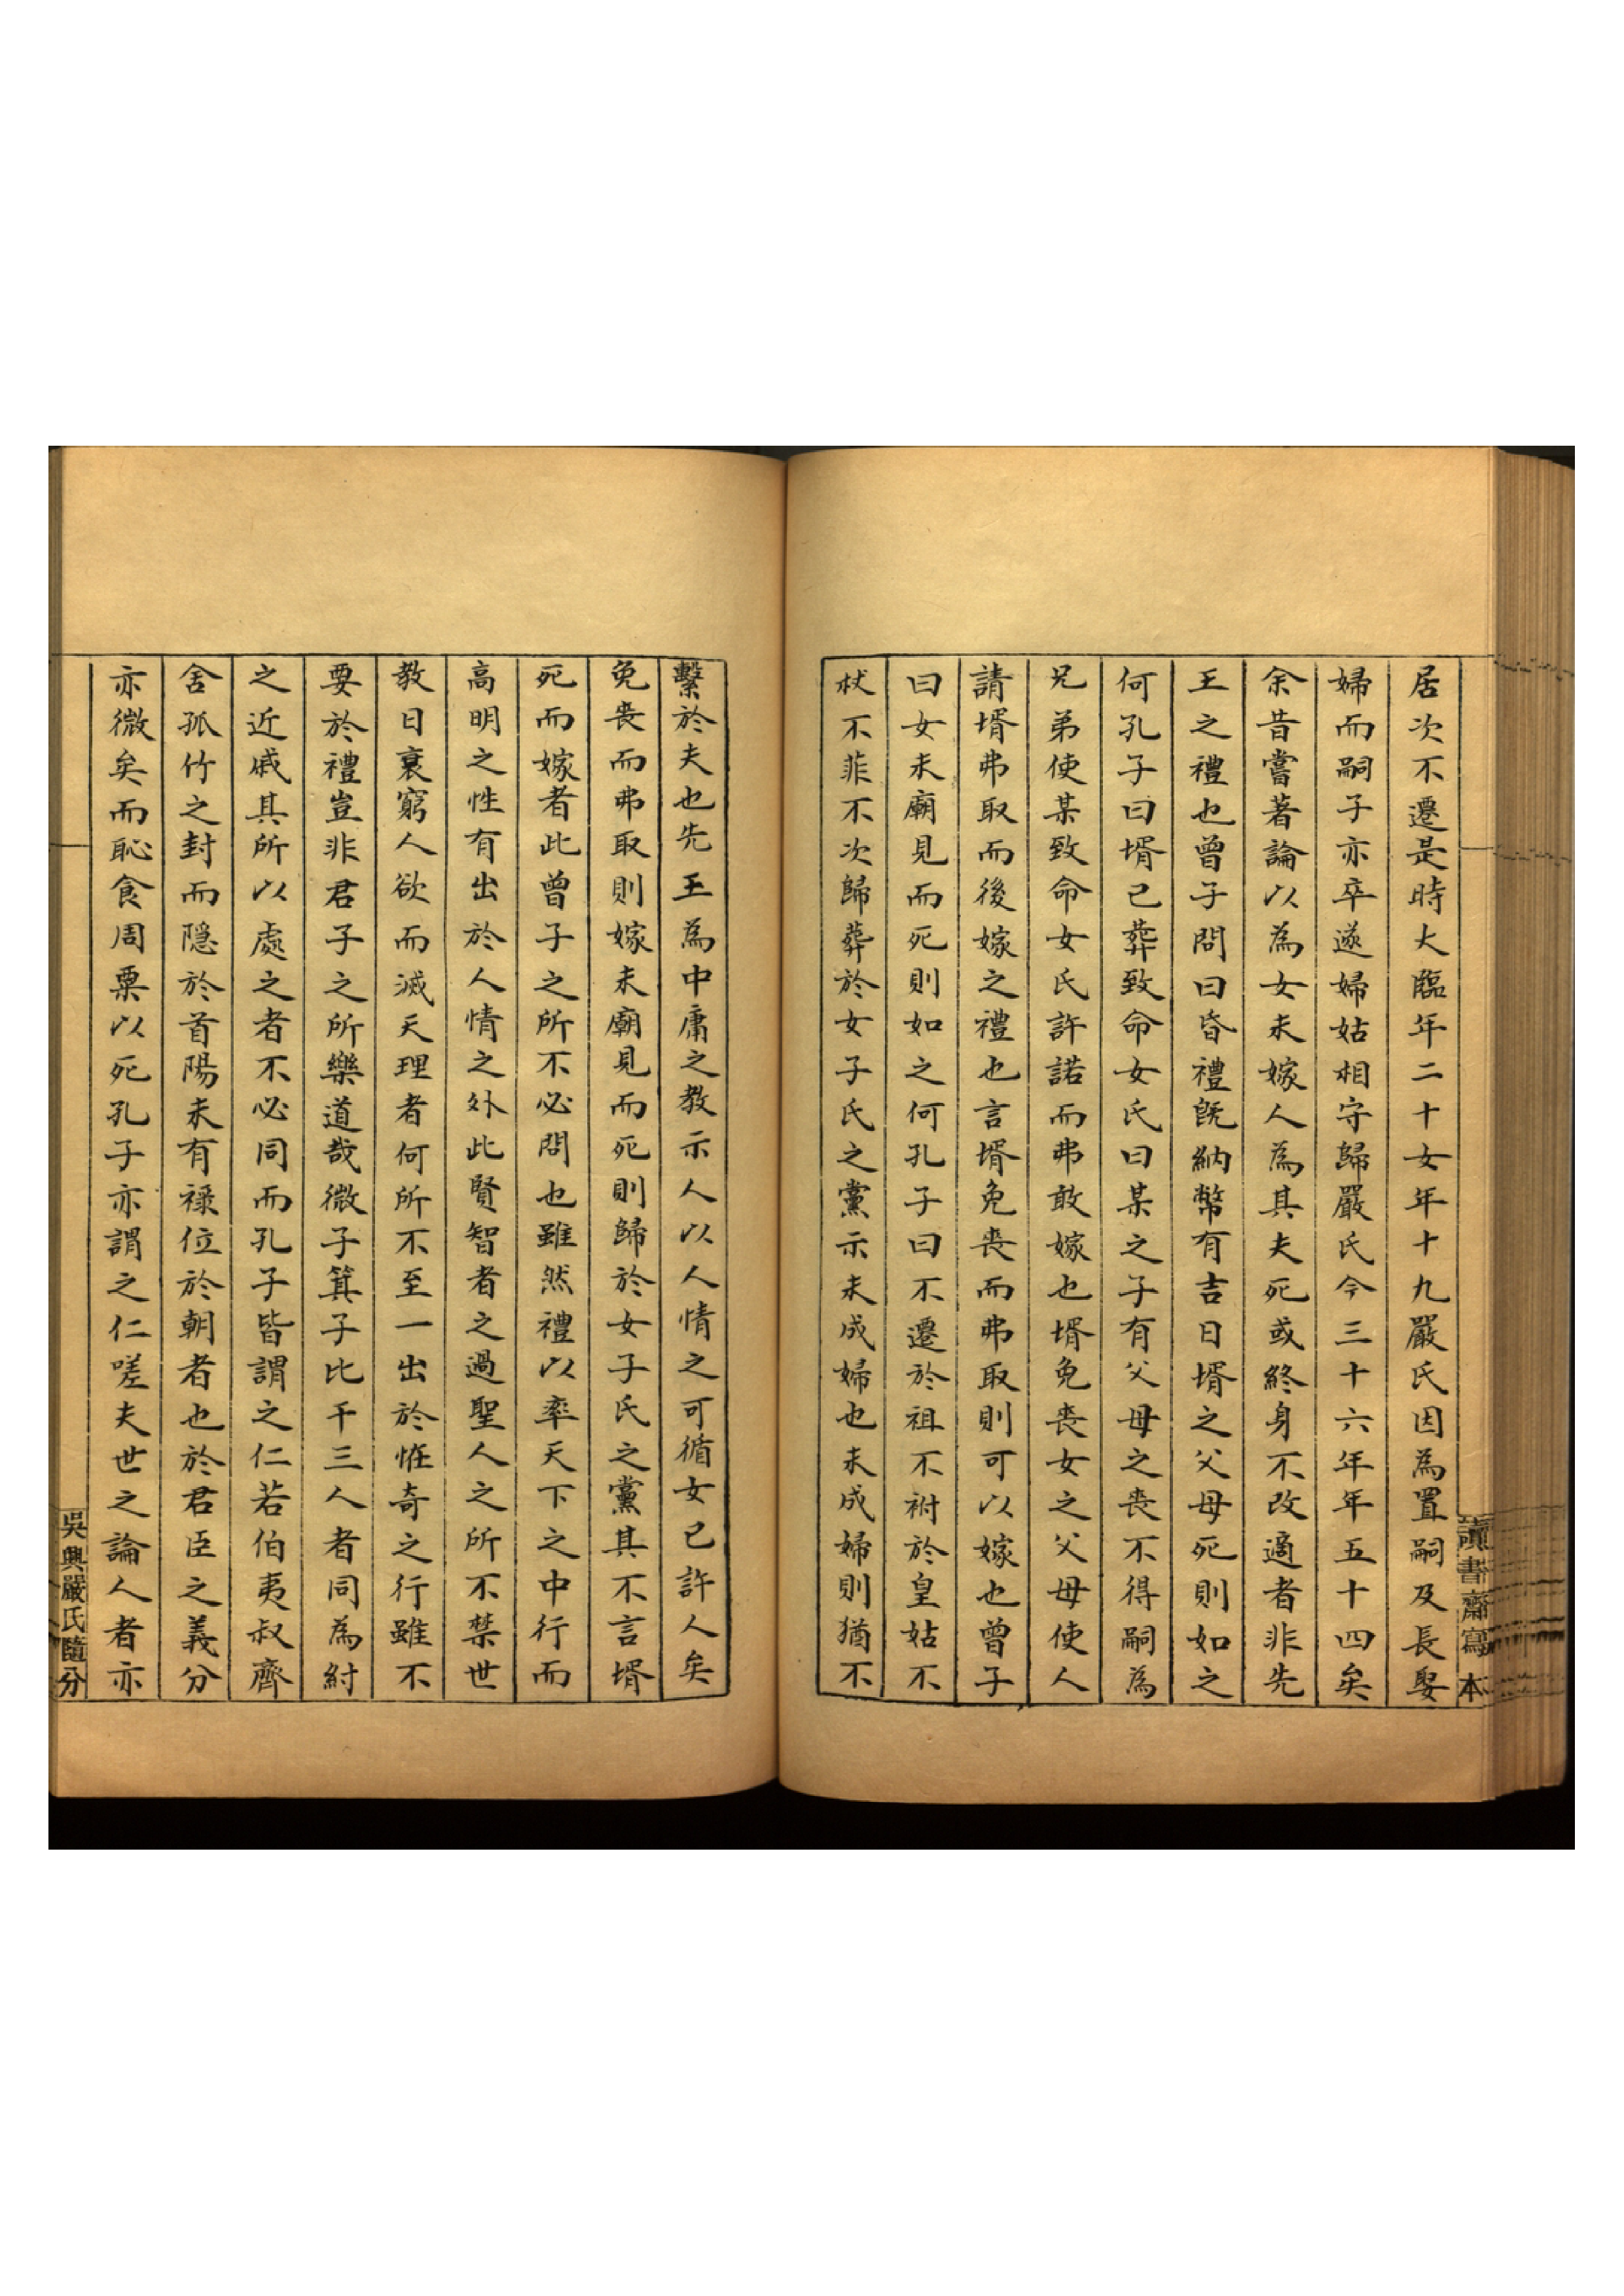 居次不遷是時大臨年二十女年十九嚴氏因為置嗣及長娶
婦而嗣子亦卒遂婦姑相守歸嚴氏今三十六年年五十四矣
余昔嘗著論以為女未嫁人為其夫死或終身不改適者非先
王之禮也曾子問曰昏禮既納幣有吉日壻之父母死則如之
何孔子曰壻已葬致命女氏曰某之子有父母之喪不得嗣為
兄弟使某致命女氏許諾而弗敢嫁也壻免喪女之父母使人
請壻弗取而後嫁之禮也言壻免喪而弗取則可以嫁也曾子
曰女未廟見而死則如之何孔子曰不遷於祖不祔於皇姑不
杖不菲不次歸葬於女子氏之黨示未成婦也未成婦則猶不
繫於夫也先王為中庸之教示人以人情之可循女已許人矣
免喪而弗取則嫁未廟見而死則歸於女子氏之黨其不言壻
死而嫁者此曾子之所不必問也雖然禮以率天下之中行而
高明之性有出於人情之外此賢智者之過聖人之所不禁世
教日衰窮人欲而滅天理者何所不至一出於恠奇之行雖不
要於禮豈非君子之所樂道哉微子箕子比干三人者同為紂
之近戚其所以處之者不必同而孔子皆謂之仁若伯夷叔齊
舍孤竹之封而隱於首陽未有祿位於朝者也於君臣之義分
亦微矣而恥食周粟以死孔子亦謂之仁嗟夫世之論人者亦
讀書齋寫本
吳興嚴氏隨分